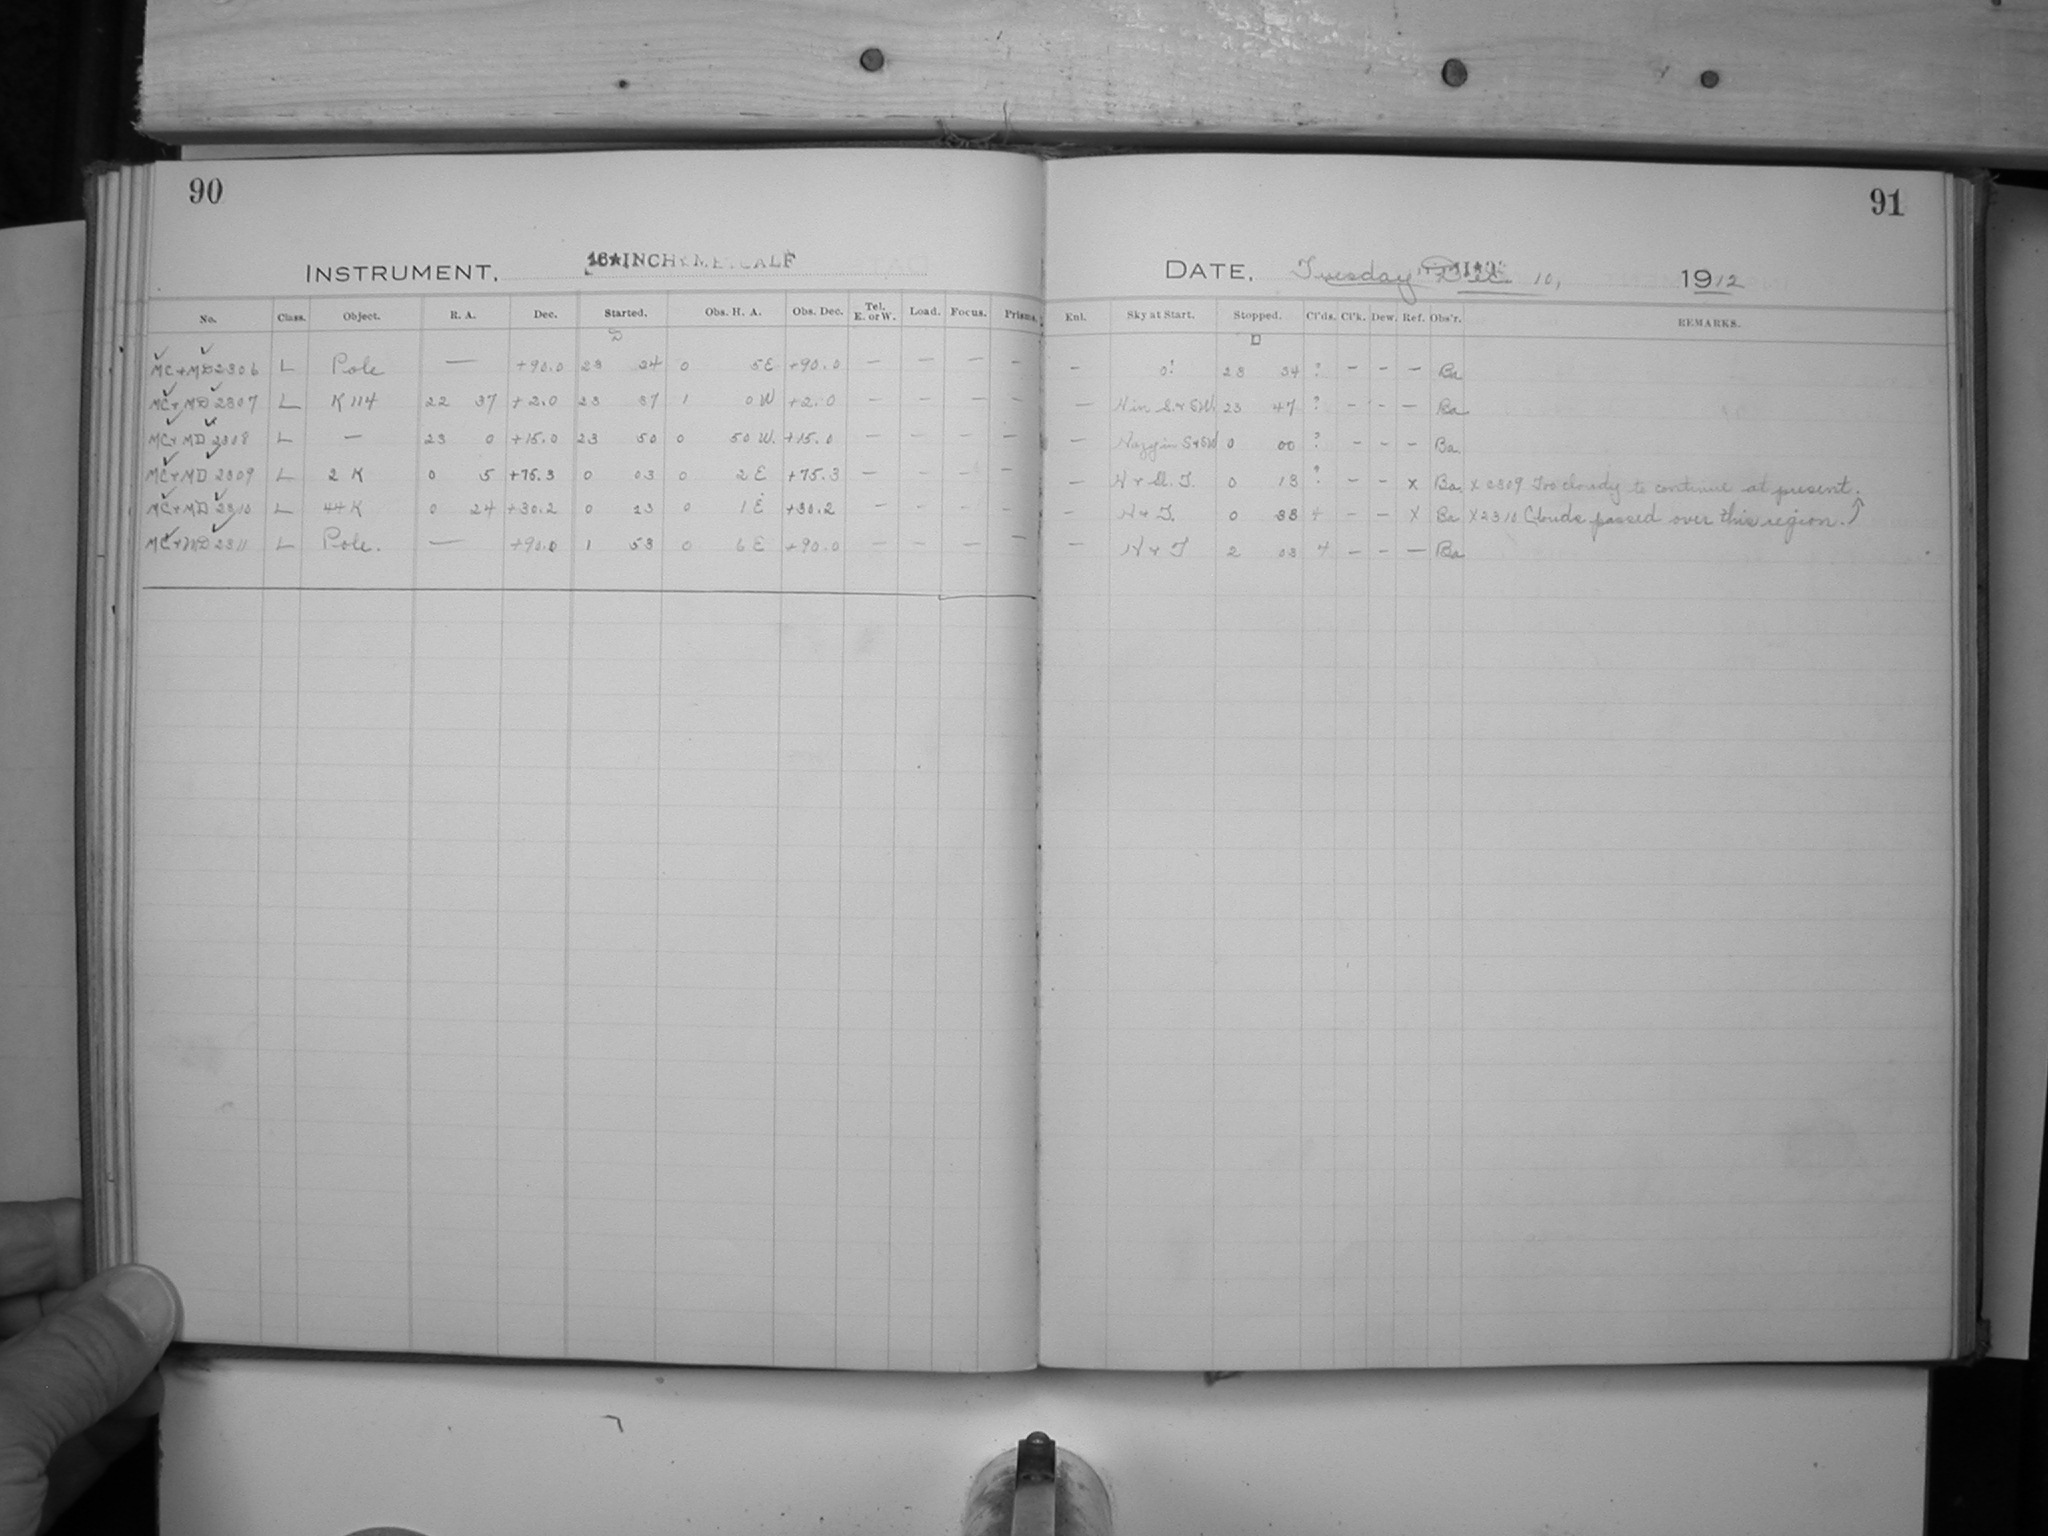 90
INSTRUMENT, 16★INCH★METCALF
No. Class. Object. R. A. Dec. Started. Obs. H. A. Obs. Dec. Tel. E. or W. Load. Focus. Prisms.
MC+MD 2306 L Pole — +90.0 23 24 0 5E +90.0 — — — —
MC+MD 2307 L K 114 22 37 +2.0 23 37 1 0 W +2.0 — — — —
MC+MD 2308 L — 23 0 +15.0 23 50 0 50 W. +15.0 — — — —
MC+MD 2309 L 2 K 0 5 +75.3 0 03 0 2 E +75.3 — — — —
MC+MD 2310 L 44 K 0 24 +30.2 0 23 0 1 E +30.2 — — — —
MC+MD 2311 L Pole. — +90.0 1 53 0 6 E +90.0 — — — —
91
DATE, Tuesday Dec. 10, 1912
Enl. Sky at Start. Stopped. Cl'ds. Cl'k. Dew. Ref. Obs'r. REMARKS.
— 0! 23 34 ? — — — Ba
— H in S. + SW. 23 47 ? — — — Ba
— Hazy in S+SW 0 00 ? — — — Ba.
— H + 0 13 ? — — x Ba. x 2309 Too cloudy to continue at present.
— H + T. 0 33 4 — — x Ba x 2310 Clouds passed over this region.
— H + T 2 03 4 — — — Ba